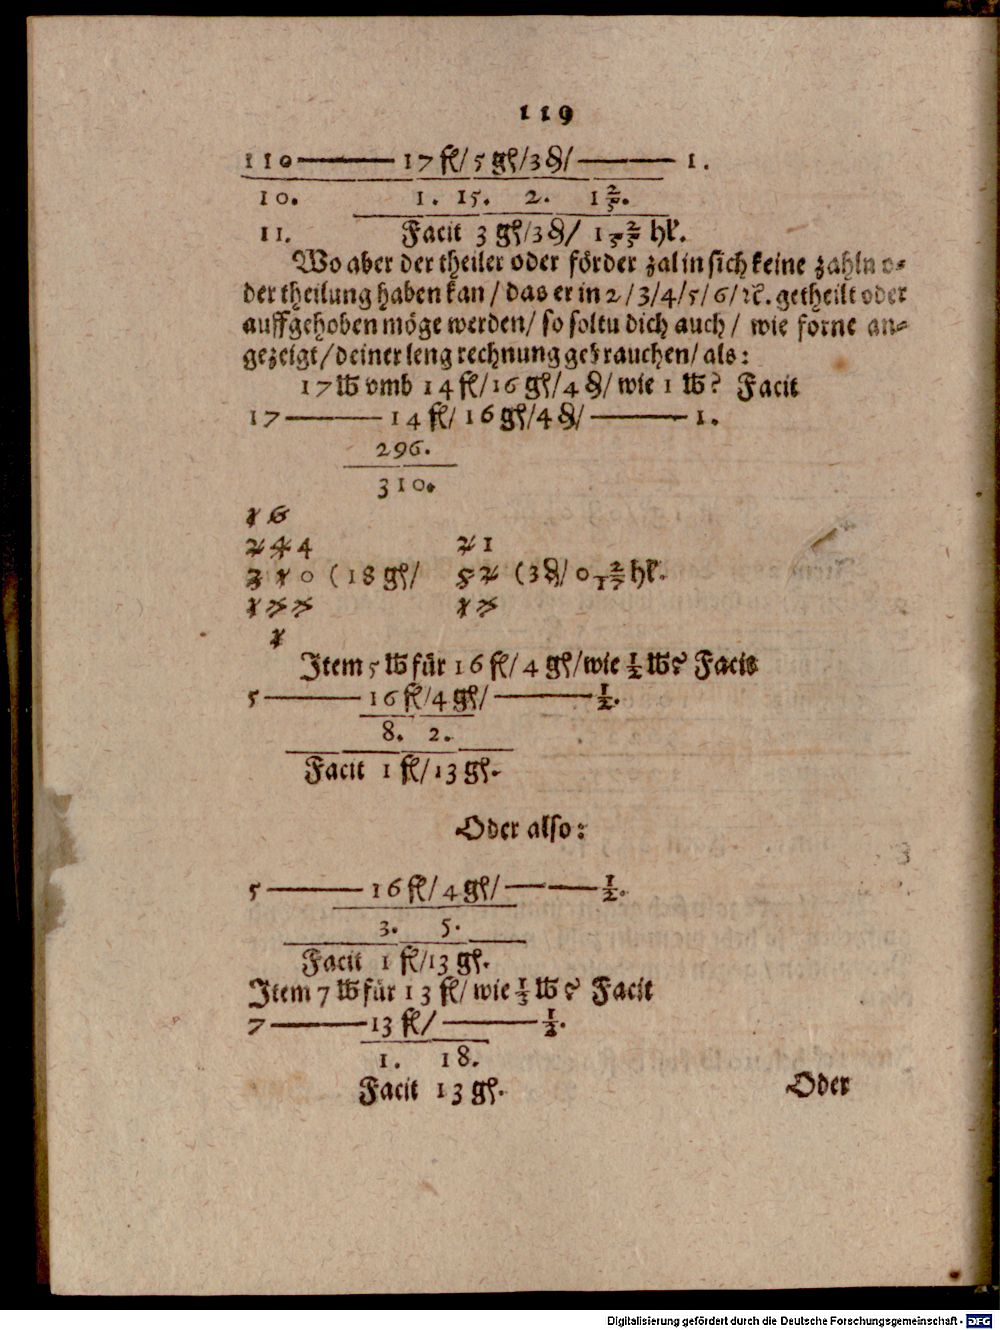 119
110 —— 17 fl/ 5 gſ/3 ₰/ —— 1.
10. 1. 15. 2. 1 2/5.
11. Facit 3 gſ/3 ₰/ 1 27/55 hl.
Wo aber der theiler oder förder zal in ſich keine zahln o⸗
der theilung haben kan / das er in 2/3/4/5/6/ꝛc. getheilt oder
auffgehoben möge werden/ ſo ſoltu dich auch / wie forne an⸗
gezeigt/deiner leng rechnung gebrauchen/ als:
17 ℔ vmb 14 fl/16 gſ/4 ₰/ wie 1 ℔? Facit
17 —— 14 fl/ 16 gſ/4 ₰/ —— 1.
296.
310.
1 6
2 4 4 2 1
3 1 0 (18 gſ/ 5 2 (3₰/ 0 2/17 hl.
1 7 7 1 7
1
Item 5 ℔ für 16 fl/ 4 gſ/wie 1/2 ℔? Facit
5 —— 16 fl/4 gſ/ —— 1/2.
8. 2.
Facit 1 fl/13 gſ.
Oder alſo:
5 —— 16 fl/ 4 gſ/ —— 1/2.
3. 5.
Facit 1 fl/13 gſ.
Item 7 ℔ für 13 fl/ wie 1/3 ℔? Facit
7 —— 13 fl/ —— 1/2.
1. 18.
Facit 13 gſ.
Oder
Digitalisierung gefördert durch die Deutsche Forschungsgemeinschaft - DFG